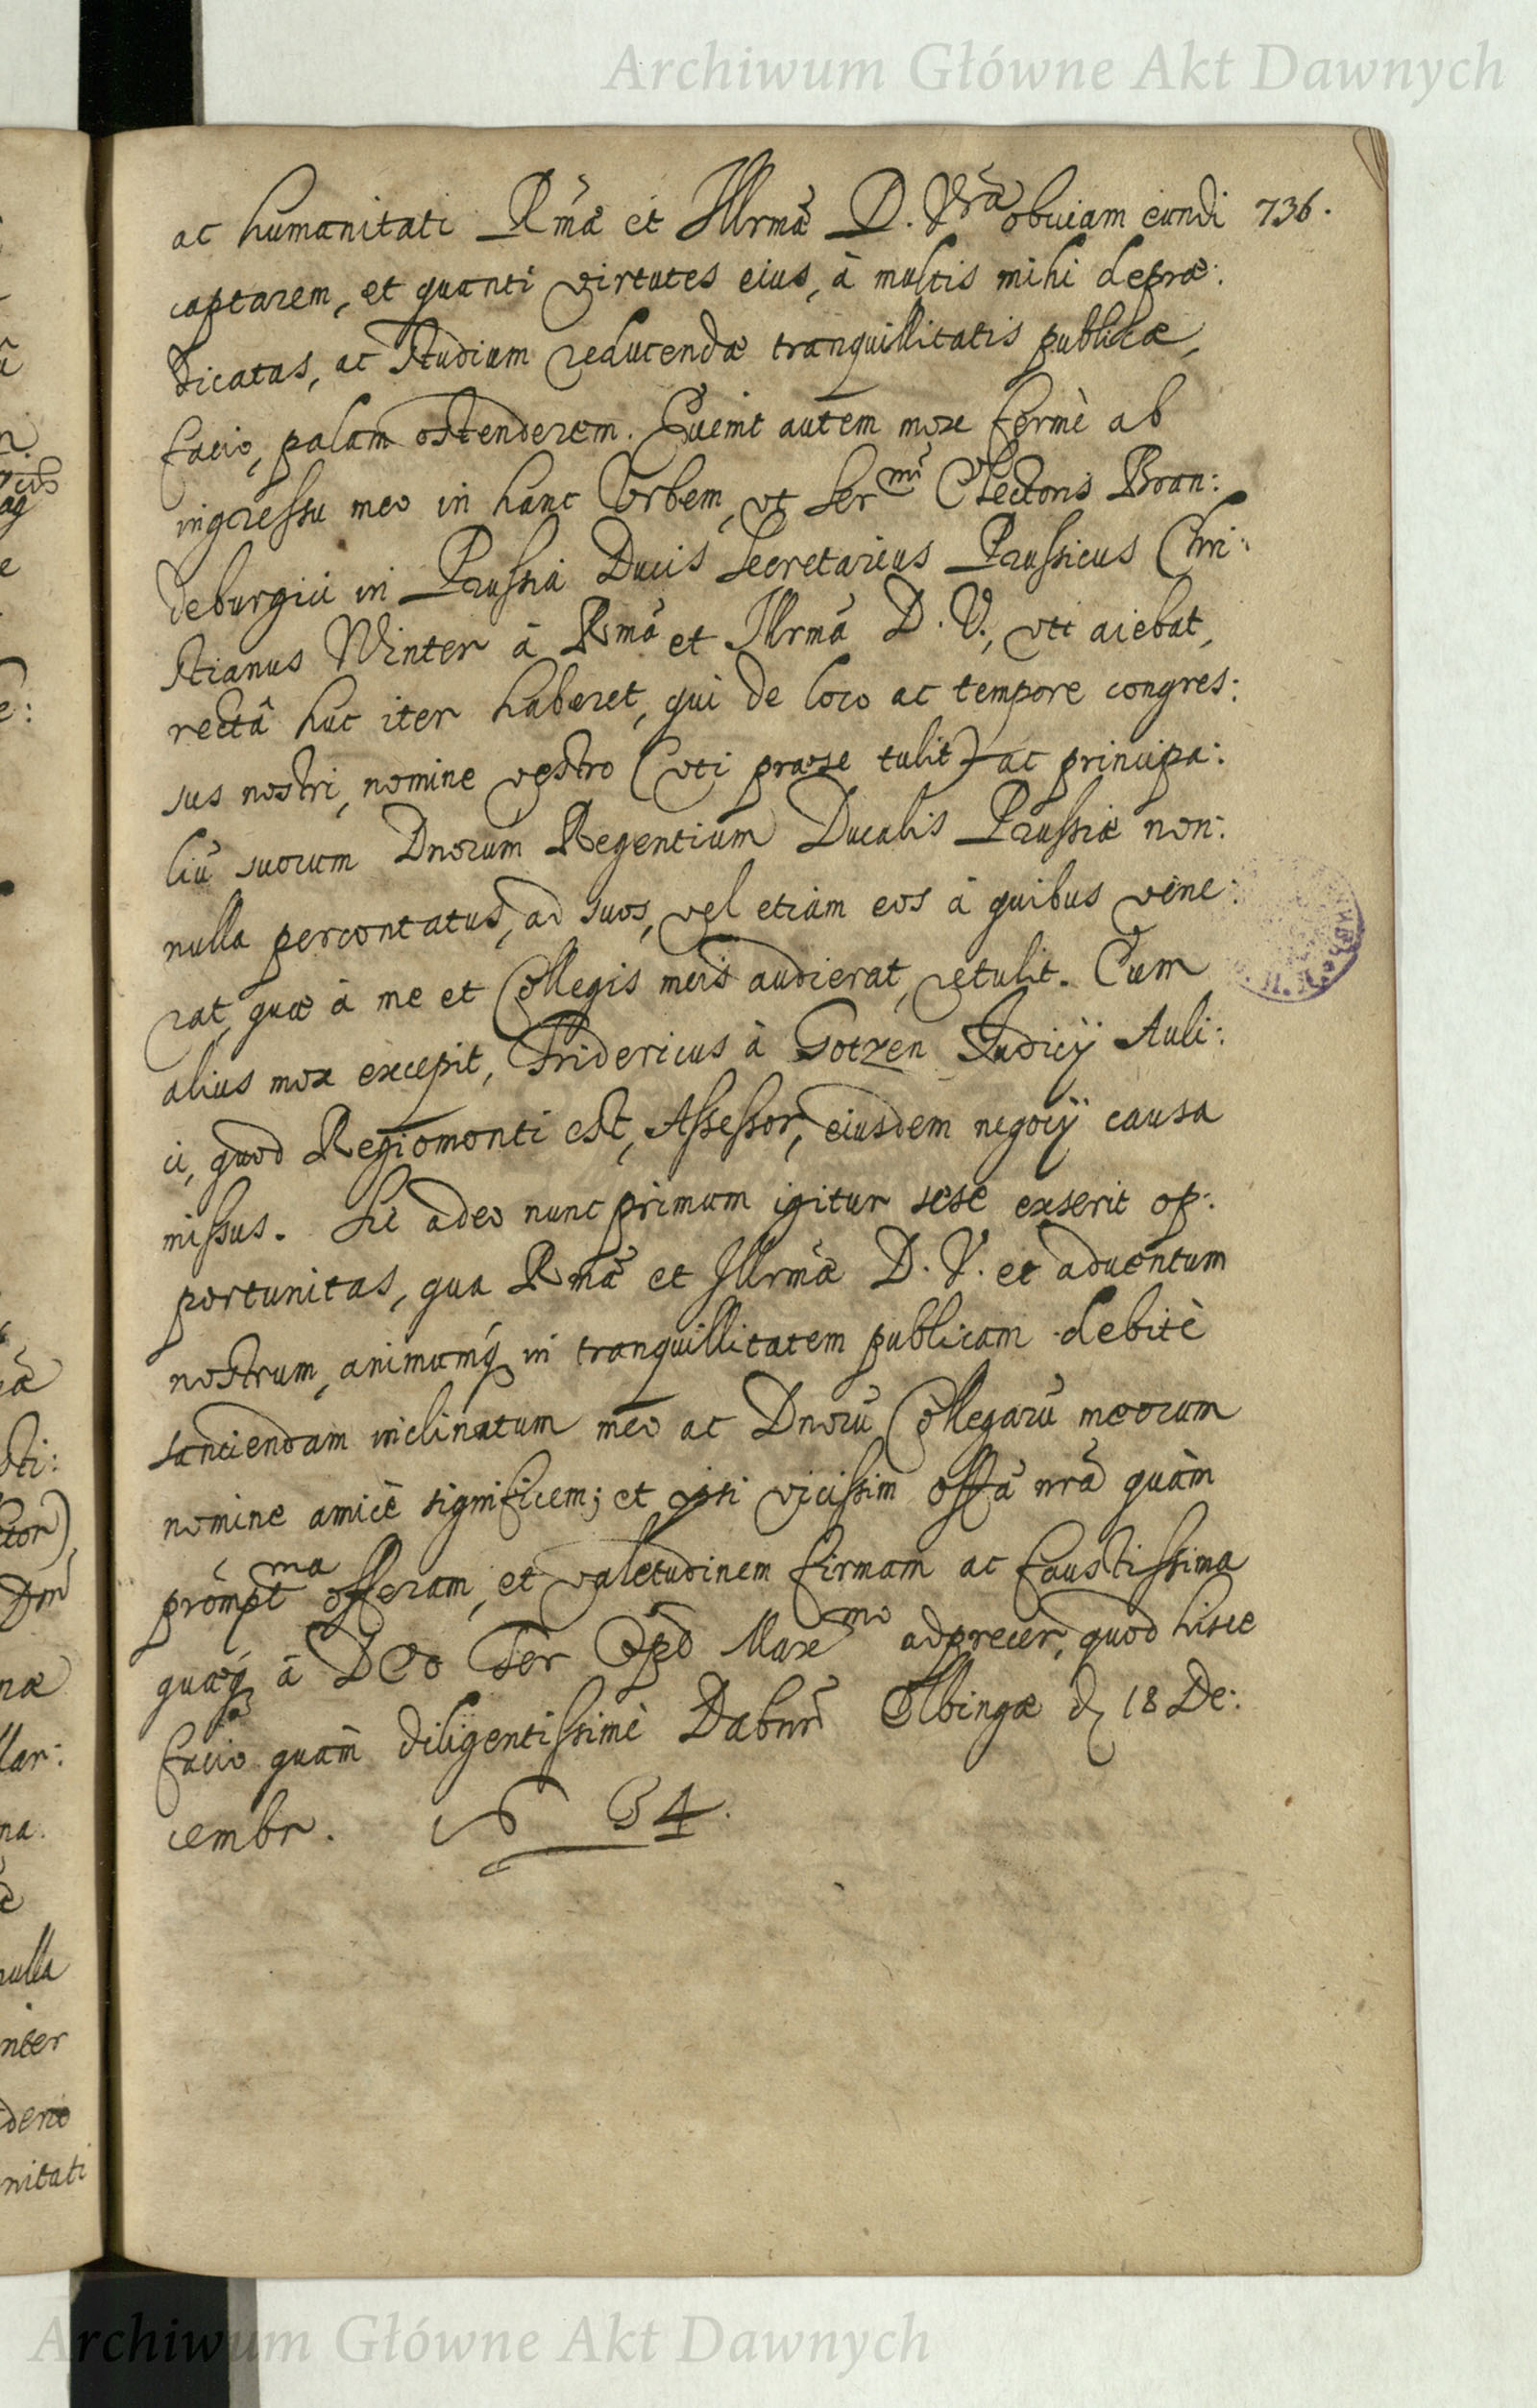 Archiwum Główne Akt Dawnych
ac humanitati Rmæ et Illrmæ D. Vræ obuiam eundi 736.
captarem, et quanti virtutes eius, à multis mihi depræ:
dicatas, ac studium reducendæ tranquillitatis publicæ,
facio, palam ostenderem. Euenit autem mox fermè ab
ingressu meo in hanc Urbem, ut Sermi Electoris Bran:
deburgici in Prussiâ Ducis Secretarius Prussicus Chri:
stianus Winter à Rmâ et Illrmâ D. V., uti aiebat,
rectâ huc iter haberet, qui de loco ac tempore congres:
sus nostri, nomine vestro (uti præ se tulit) ac principa:
liũ suorum Dnorum Regentium Ducalis Prussiæ non:
nulla percontatus, ad suos, vel etiam eos à quibus vene:
rat, quæ à me et Collegis meis audierat, retulit. Eum
alius mox excepit, Fridericus à Gotzen Judicij Auli:
ci, quod Regiomonti est, Assessor, eiusdem negocij causa
missus. Sic adeo nunc primum igitur sese exserit op:
portunitas, qua Rmæ et Illrmæ D. V. et aduentum
nostrum, animumq́ in tranquillitatem publicam debitè
sanciendam inclinatum meo ac Dnorũ Collegarũ meorum
nomine amicè significem; et ipsi vicissim offã nrã quàm
promptma offeram, et valetudinem firmam ac faustissima
quæq́ à DEO Ter Opt Maxmo adprecer, quod hisce
facio quàm diligentissimè Dabnr Elbingæ d. 18 De:
cembr. 34.
Archiwum Główne Akt Dawnych